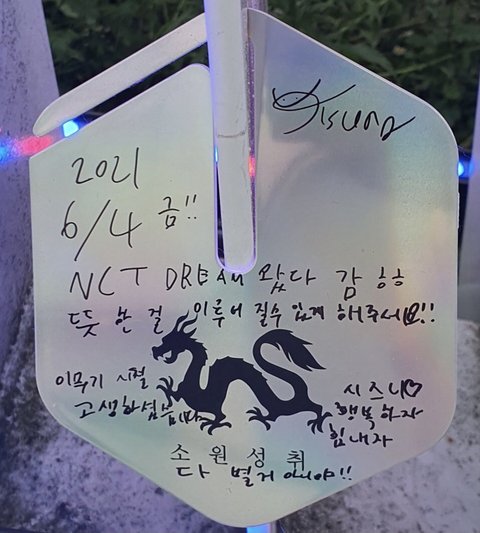 Jisung
2021
6/4 금!!
NCT DREAM 왔다 감 ㅎㅎ
뜻 한 걸 이루어 질수 있게 해주세요!!
이무기 시절
고생하셨습니다
시즈니♡
행복하자
힘내자
소원성취
다 별거 아니야!!